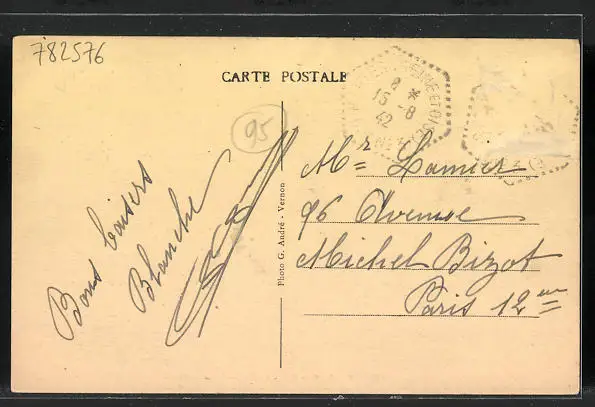 782576
CARTE POSTALE
SEINE ET OISE
8 *
15 -8
42
95
Bons baisers
Blanche
Photo G. André - Vernon
Mr Lamier
96 Avenue
Michel Bizot
Paris 12em